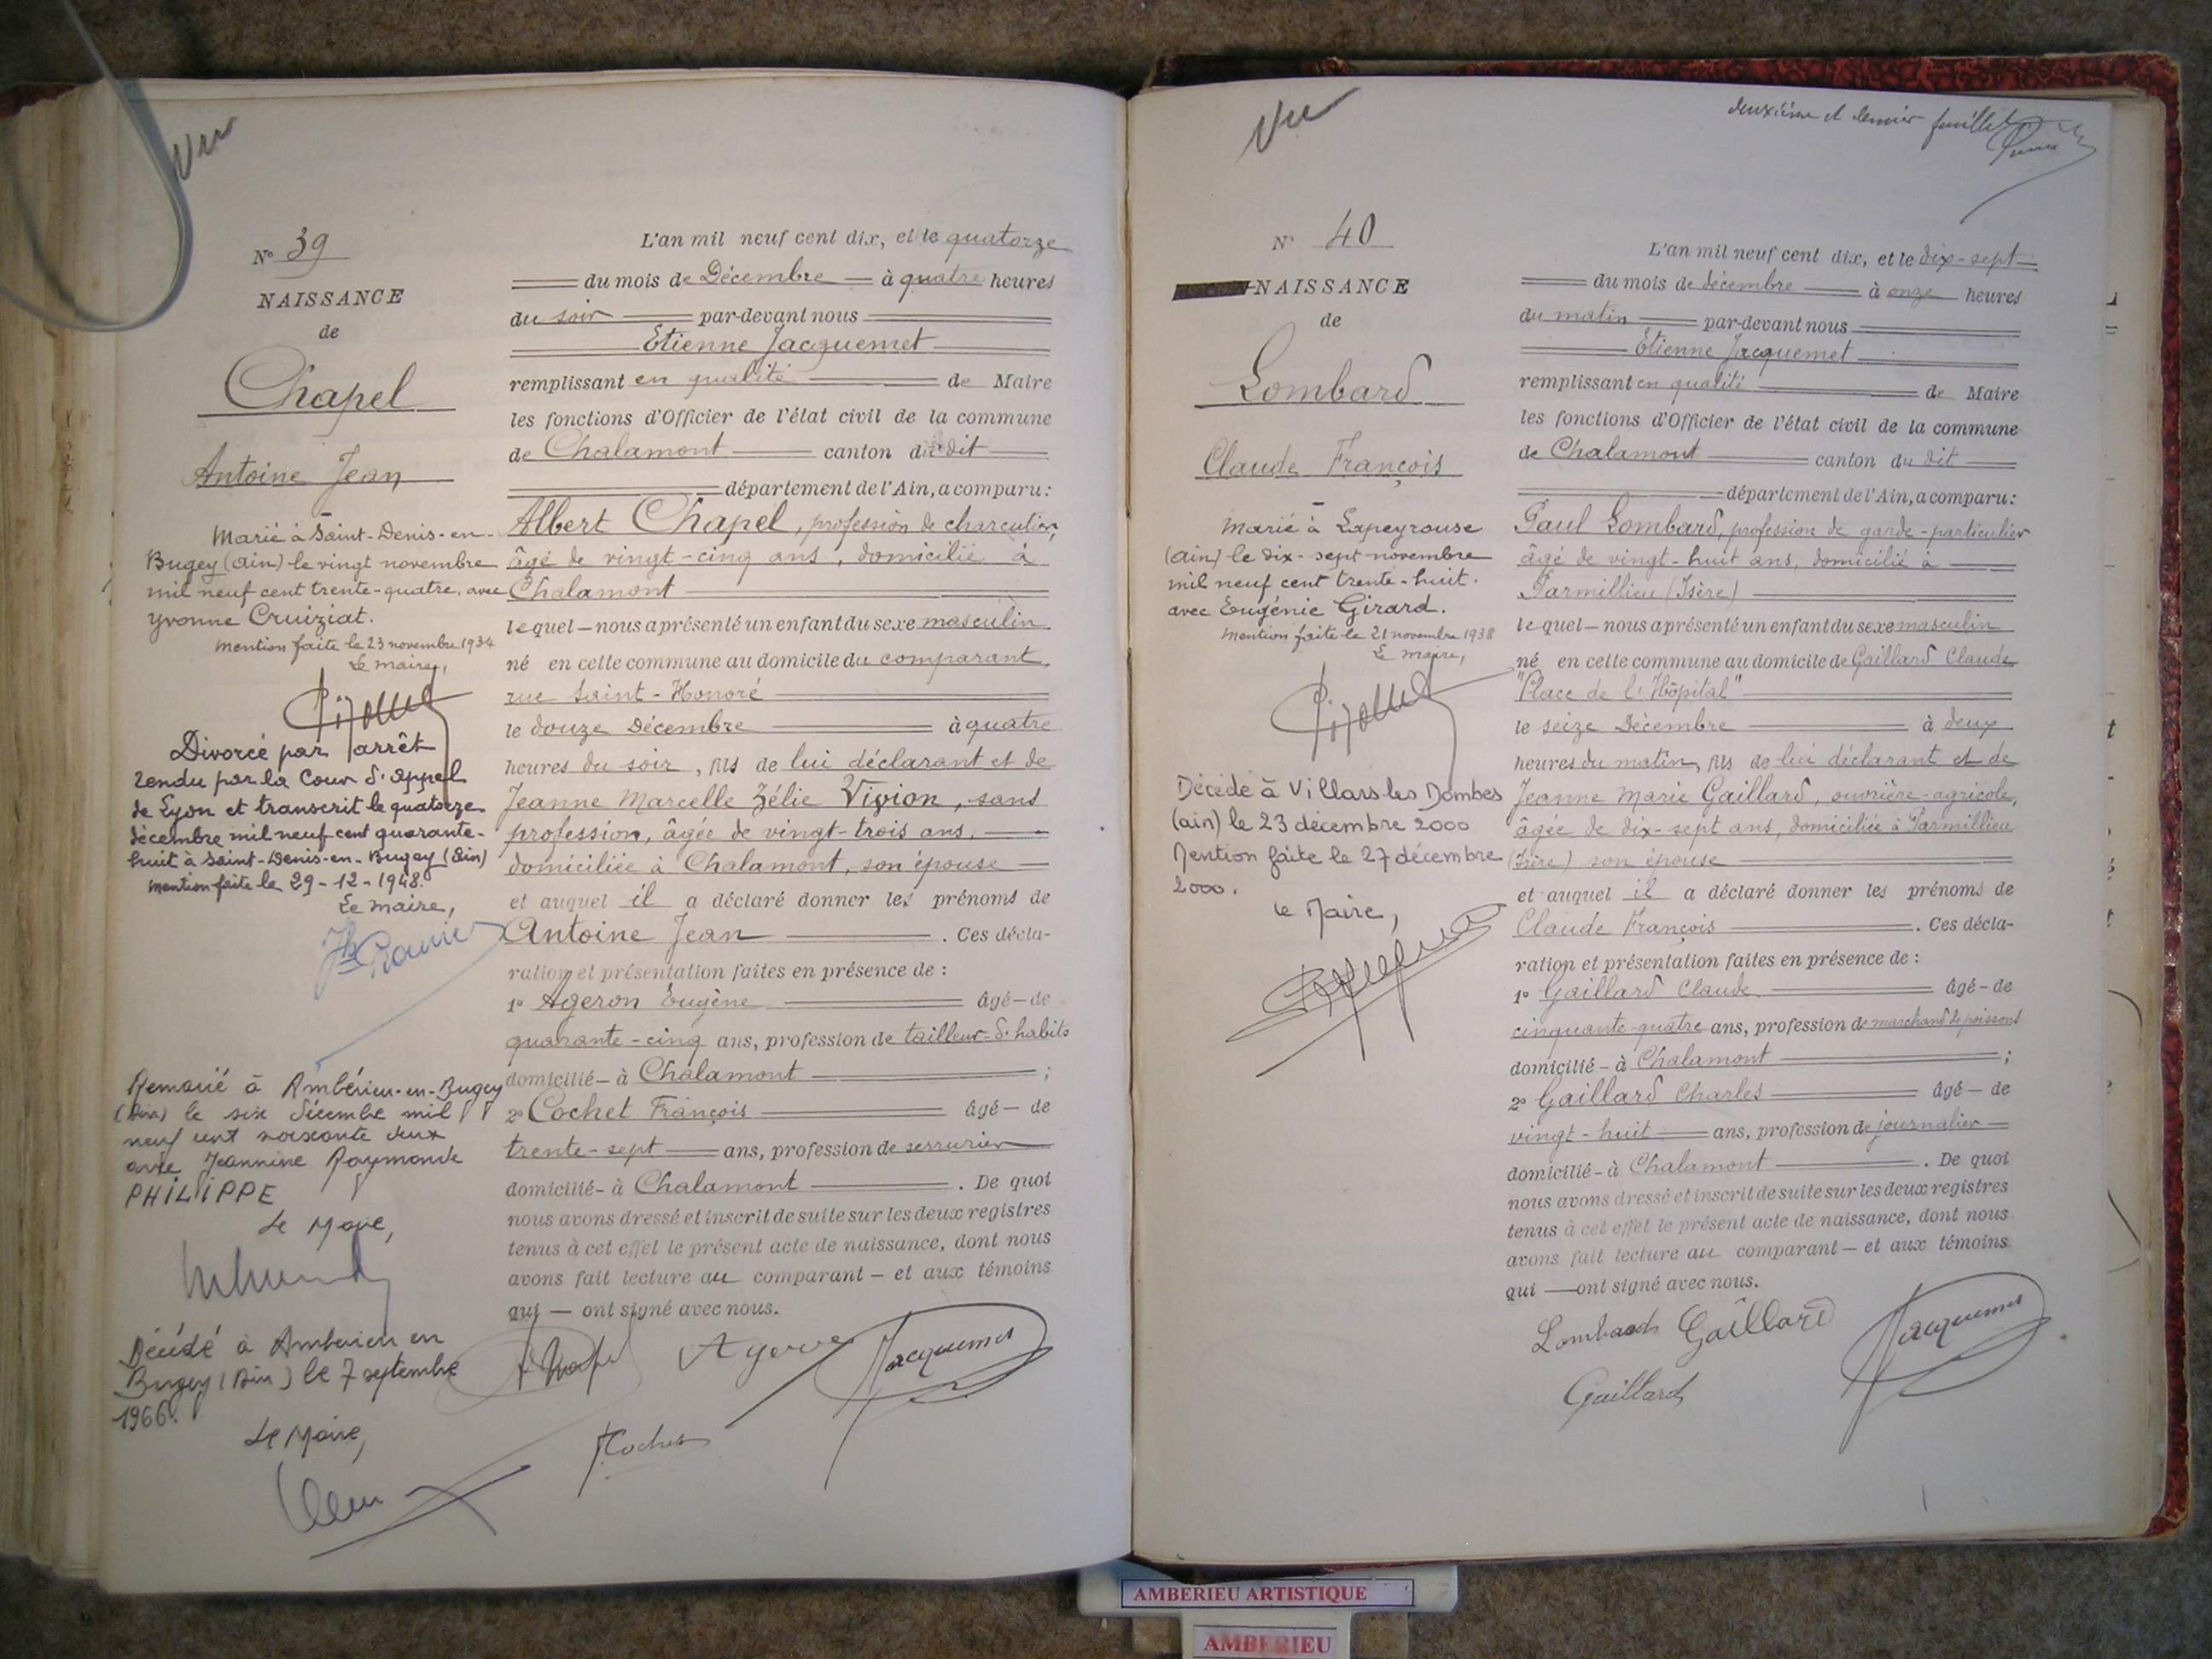 Vu
N° 39
NAISSANCE
de
Chapel
Antoine Jean
Marié à Saint-Denis-en-
Bugey (Ain) le vingt novembre
mil neuf cent trente-quatre, avec
Yvonne Cruiziat.
Mention faite le 23 novembre 1934
Le maire,
Divorcé par arrêt
rendu par la Cour d'appel
de Lyon et transcrit le quatorze
décembre mil neuf cent quarante-
huit à Saint-Denis-en-Bugey (Ain)
Mention faite le 29-12-1948.
Le maire,
Remarié à Ambérieu-en-Bugey
(Ain) le six décembre mil
neuf cent soixante deux
avec Jeannine Raymonde
PHILIPPE
Le Maire,
Décédé à Ambérieu en
Bugey (Ain) le 7 septembre
1966.
Le Maire,
L'an mil neuf cent dix, et le quatorze
du mois de Décembre à quatre heures
du soir par-devant nous
Etienne Jacquemet
remplissant en qualité de Maire
les fonctions d'Officier de l'état civil de la commune
de Chalamont canton du dit
département de l'Ain, a comparu:
Albert Chapel, profession de charcutier,
âgé de vingt-cinq ans, domicilié à
Chalamont
lequel — nous a présenté un enfant du sexe masculin
né en cette commune au domicile du comparant,
rue Saint-Honoré
le douze Décembre à quatre
heures du soir, fils de lui déclarant et de
Jeanne Marcelle Zélie Vivion, sans
profession, âgée de vingt-trois ans,
domiciliée à Chalamont, son épouse
et auquel il a déclaré donner les prénoms de
Antoine Jean . Ces décla-
ration et présentation faites en présence de :
1° Ageron Eugène âgé — de
quarante-cinq ans, profession de tailleur-d'habits
domicilié — à Chalamont ;
2° Cochet François âgé — de
trente-sept ans, profession de serrurier
domicilié - à Chalamont . De quoi
nous avons dressé et inscrit de suite sur les deux registres
tenus à cet effet le présent acte de naissance, dont nous
avons fait lecture au comparant — et aux témoins
qui — ont signé avec nous.
Jacquemet
Vu
deuxième et dernier feuillet
N° 40
NAISSANCE
de
Lombard
Claude François
Marié à Lapeyrouse
(Ain) le dix-sept novembre
mil neuf cent trente-huit.
avec Eugénie Girard.
Mention faite le 21 novembre 1938
Le maire,
Décédé à Villars-les Dombes
(ain) le 23 décembre 2000
Mention faite le 27 décembre
2000.
Le Maire,
L'an mil neuf cent dix, et le dix-sept
du mois de décembre à onze heures
du matin par-devant nous
Etienne Jacquemet
remplissant en qualité de Maire
les fonctions d'Officier de l'état civil de la commune
de Chalamont canton du dit
département de l'Ain, a comparu:
Paul Lombard, profession de garde-particulier
âgé de vingt-huit ans, domicilié à
Parmillieu (Isère)
lequel — nous a présenté un enfant du sexe masculin
né en cette commune au domicile de Gaillard Claude
"Place de l'Hôpital"
le seize Décembre à deux
heures du matin, fils de lui déclarant et de
Jeanne Marie Gaillard, ouvrière-agricole,
âgée de dix-sept ans, domiciliée à Parmillieu
(Isère) son épouse
et auquel il a déclaré donner les prénoms de
Claude François . Ces décla-
ration et présentation faites en présence de :
1° Gaillard Claude âgé - de
cinquante-quatre ans, profession de marchand de poissons
domicilié - à Chalamont ;
2° Gaillard Charles âgé — de
vingt-huit ans, profession de journalier
domicilié - à Chalamont . De quoi
nous avons dressé et inscrit de suite sur les deux registres
tenus à cet effet le présent acte de naissance, dont nous
avons fait lecture au comparant — et aux témoins
qui — ont signé avec nous.
Lombard Gaillard Jacquemet
Gaillard
AMBERIEU ARTISTIQUE
AMBERIEU